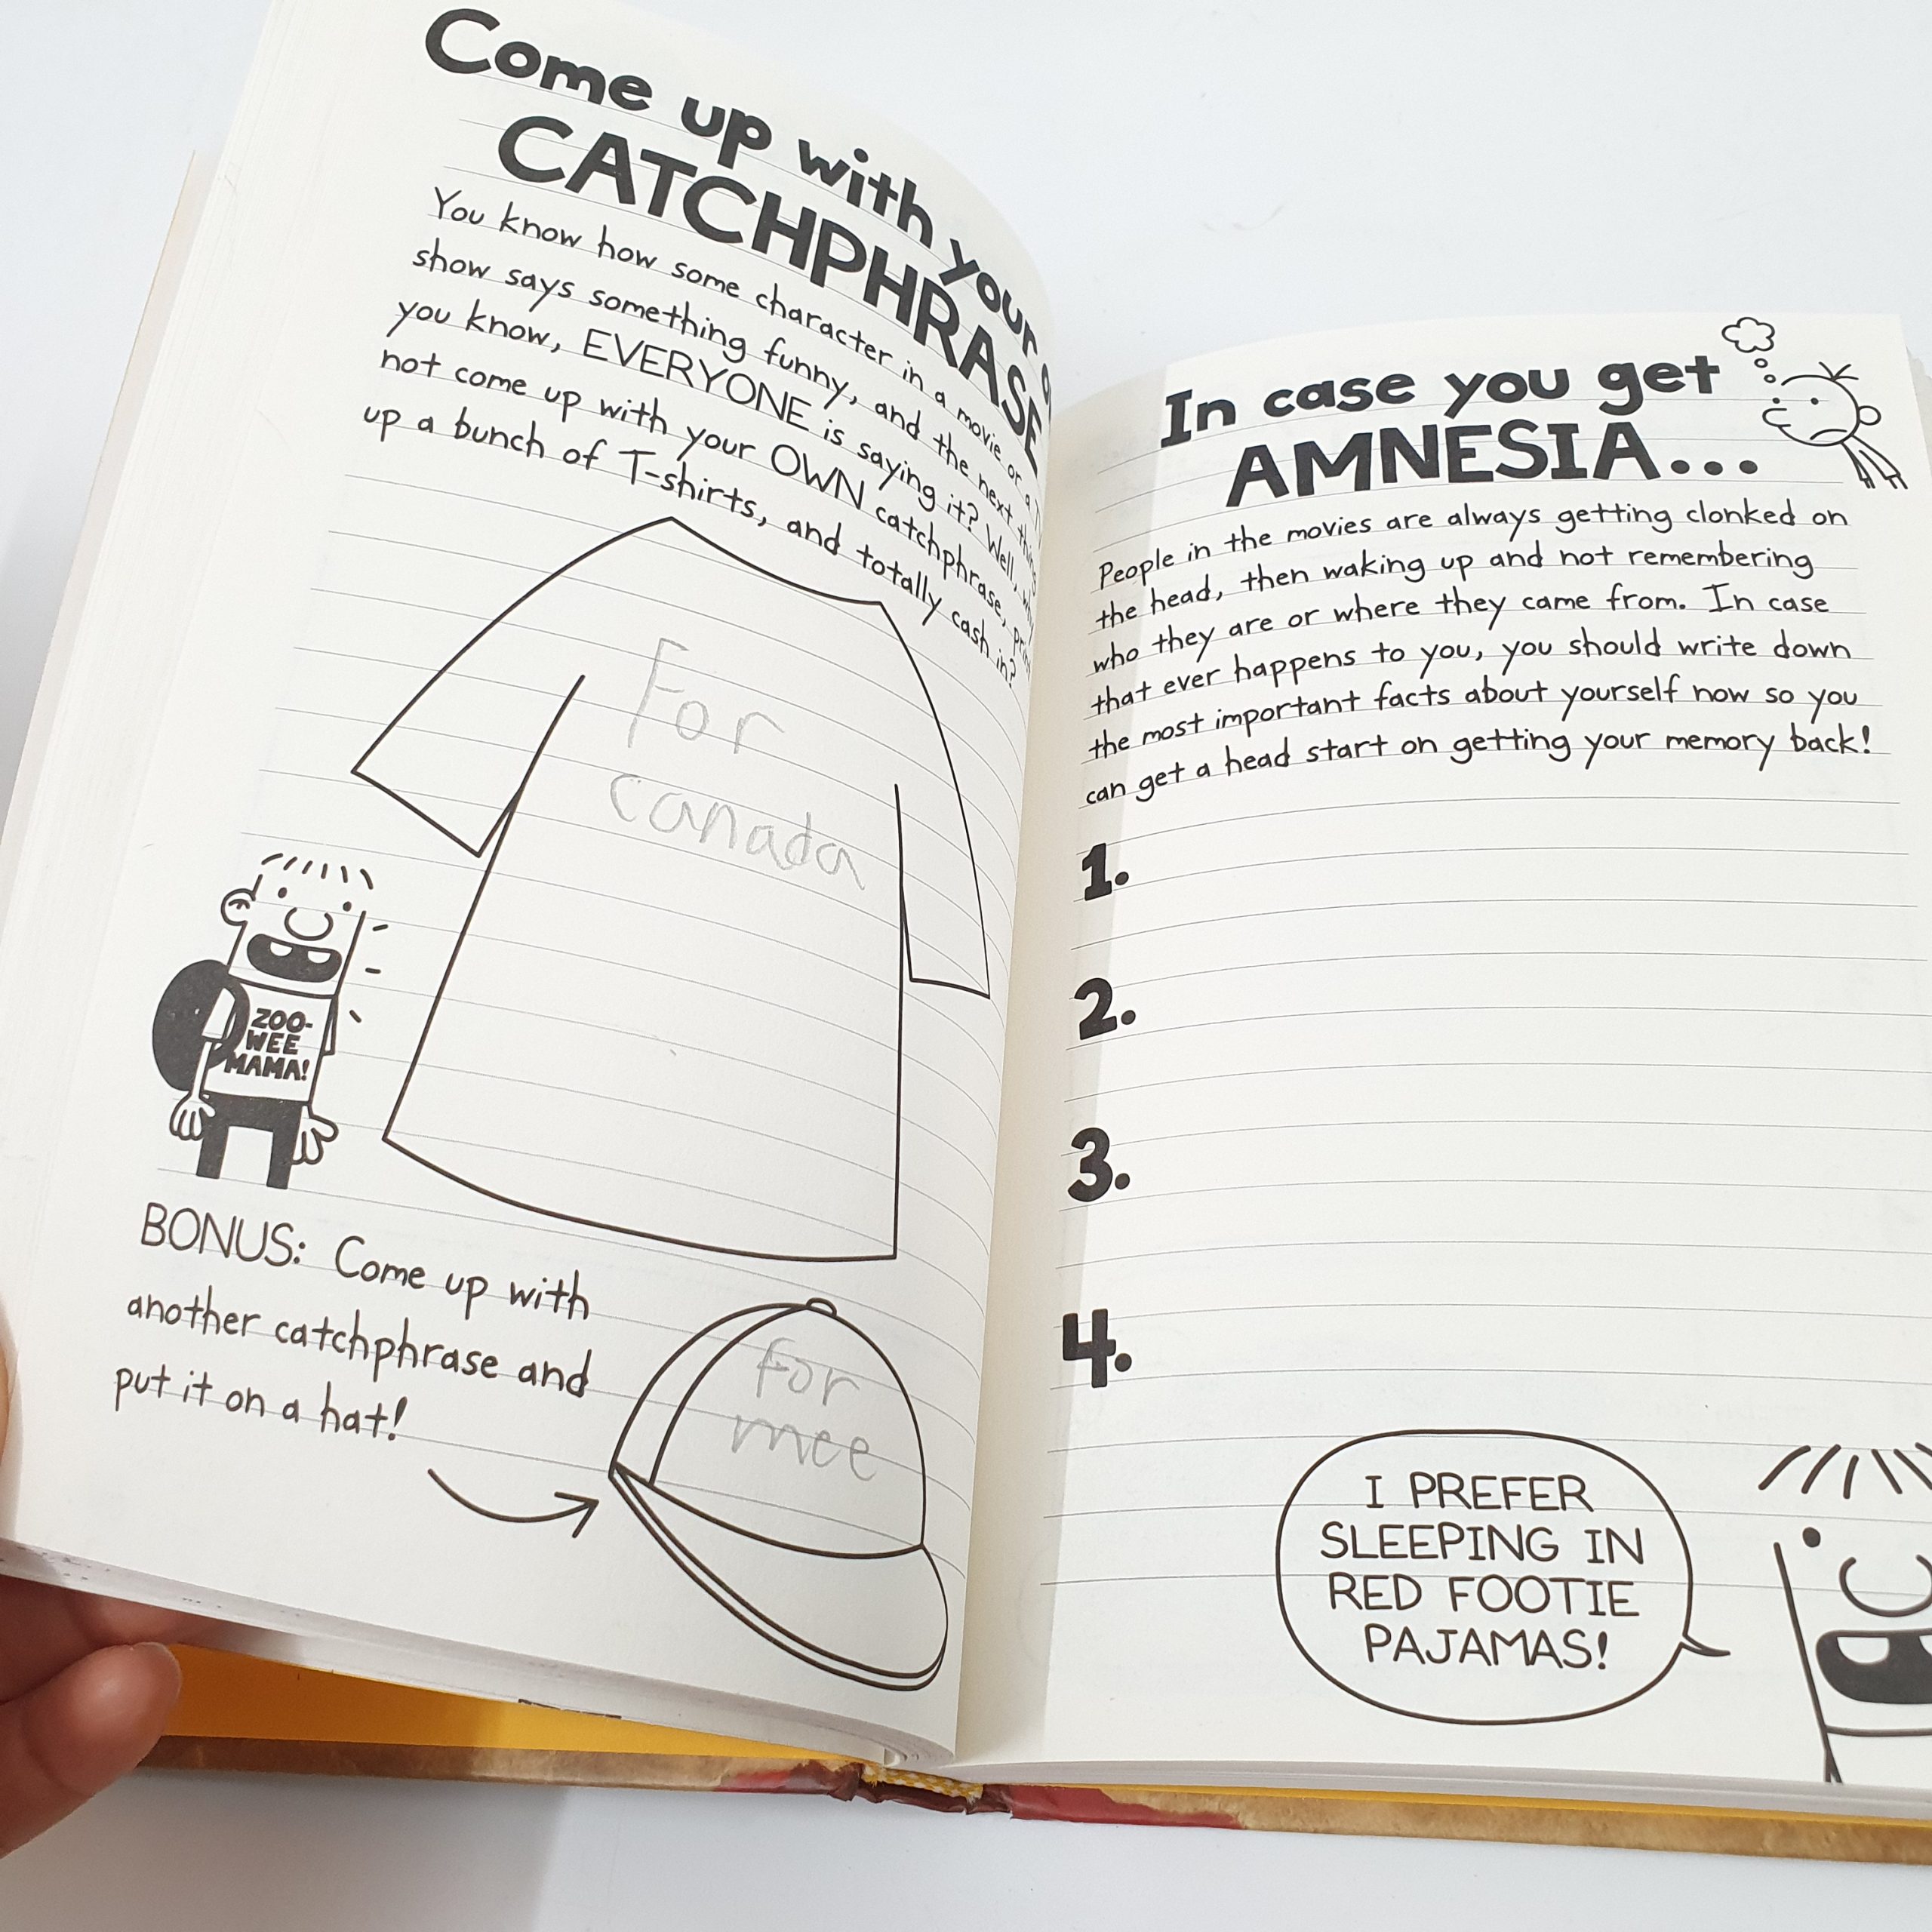 Come up with your
CATCHPHRASE
You know how some character in a movie or a
show says something funny, and the next thing
you know, EVERYONE is saying it? Well, why
not come up with your OWN catchphrase, print
up a bunch of T-shirts, and totally cash in?
For
canada
ZOO-
WEE
MAMA!
BONUS: Come up with
another catchphrase and
put it on a hat!
For
mee
In case you get
AMNESIA...
People in the movies are always getting clonked on
the head, then waking up and not remembering
who they are or where they came from. In case
that ever happens to you, you should write down
the most important facts about yourself now so you
can get a head start on getting your memory back!
1.
2.
3.
4.
I PREFER
SLEEPING IN
RED FOOTIE
PAJAMAS!